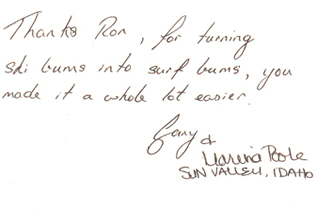 Thanks Ron, for turning
ski bums into surf bums, you
made it a whole lot easier.
Gary &
Marina Poole
SUN VALLEY, IDAHO